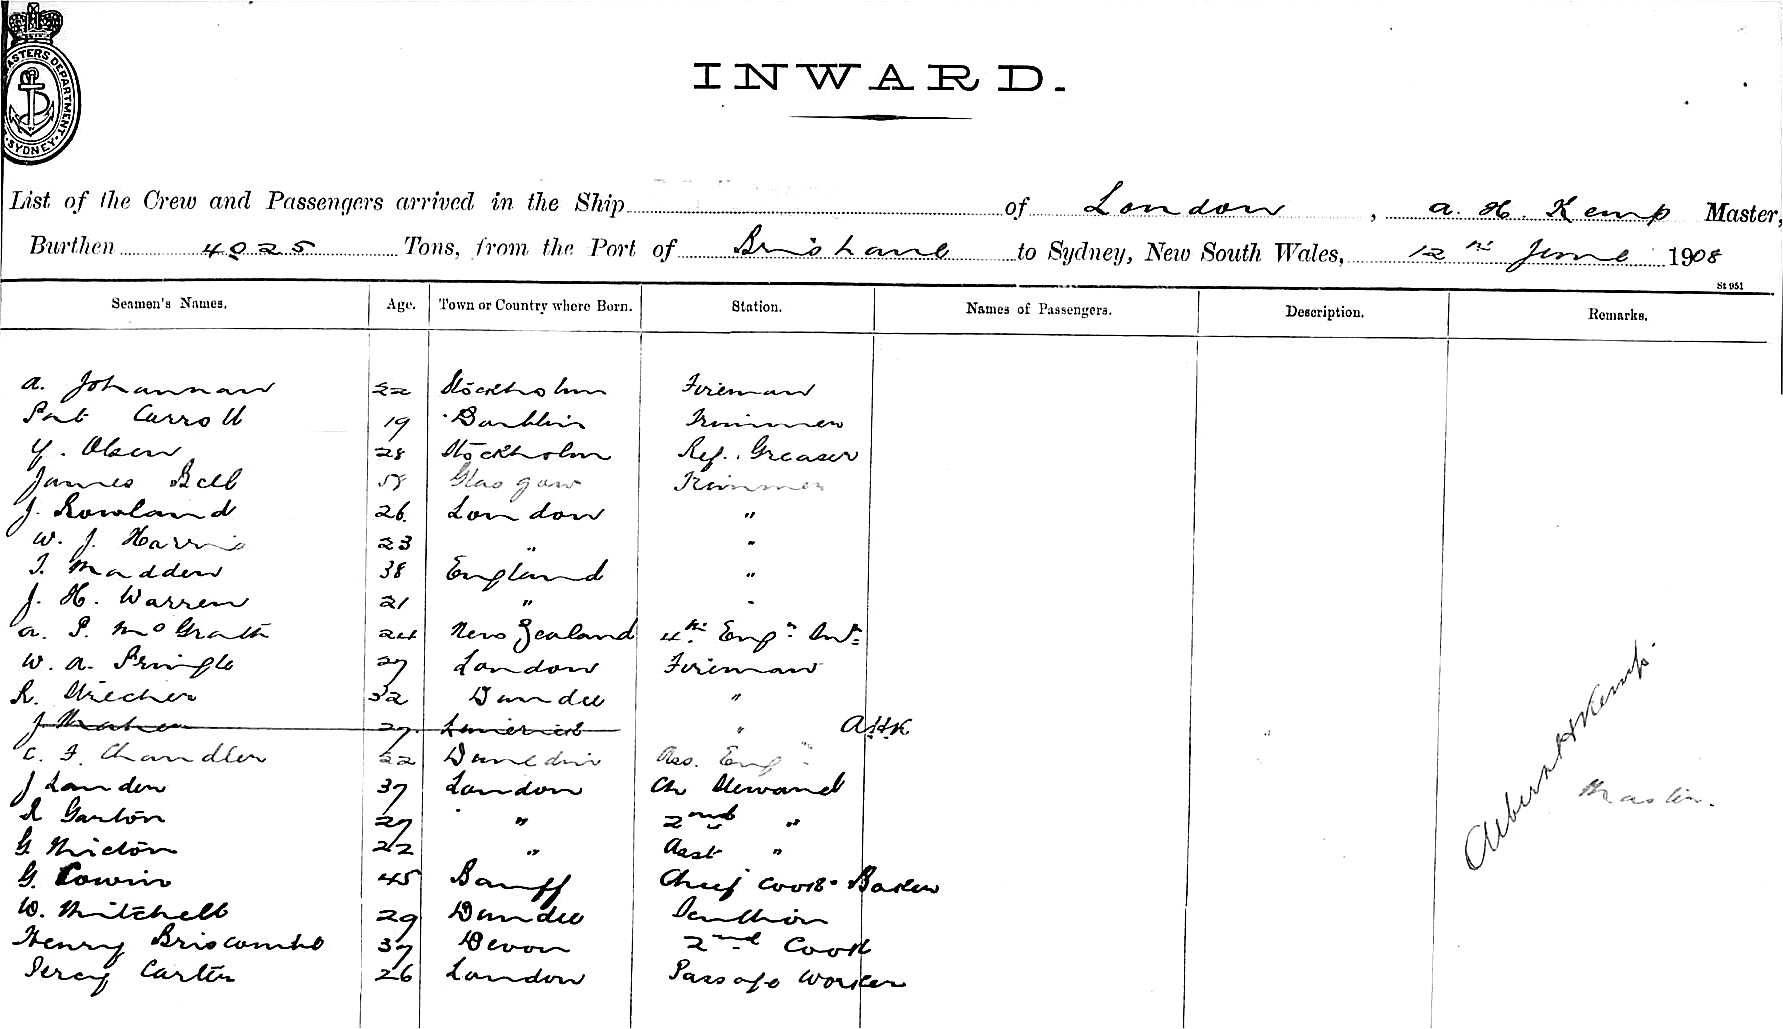 MASTERS DEPARTMENT
SYDNEY
INWARD.
List of the Crew and Passengers arrived in the Ship of London, A. H. Kemp Master,
Burthen 4025 Tons, from the Port of Brisbane to Sydney, New South Wales, 12th June 1908
St 951
Seamen's Names. Age. Town or Country where Born. Station. Names of Passengers. Description. Remarks.
A. Johannan 22 Stockholm Fireman
Pat Carroll 19 Dublin Trimmer
Y. Olsen 28 Stockholm Ref. Greaser
James Bell 58 Glasgow Trimmer
J. Rowland 26 London "
W. J. Harris 23 " "
T. Madden 38 England "
J. H. Warren 21 " "
A. P. McGrath 24 New Zealand 4th Engr
W. A. Pringle 27 London Fireman
R. 32 Dundee "
J 27 Limerick " AHK
C. F. Chandler 22 Dunedin Ass. Engr
J Landen 37 London Ch Steward
Garton 27 " 2nd "
G. 22 " Asst "
G. Cowin 45 Banff Chief Cook - Baker
W. Mitchell 29 Dundee
Henry Briscombe 37 Devon 2nd Cook
Percy Carter 26 London Passage Worker
Albert H Kemp.
Master.